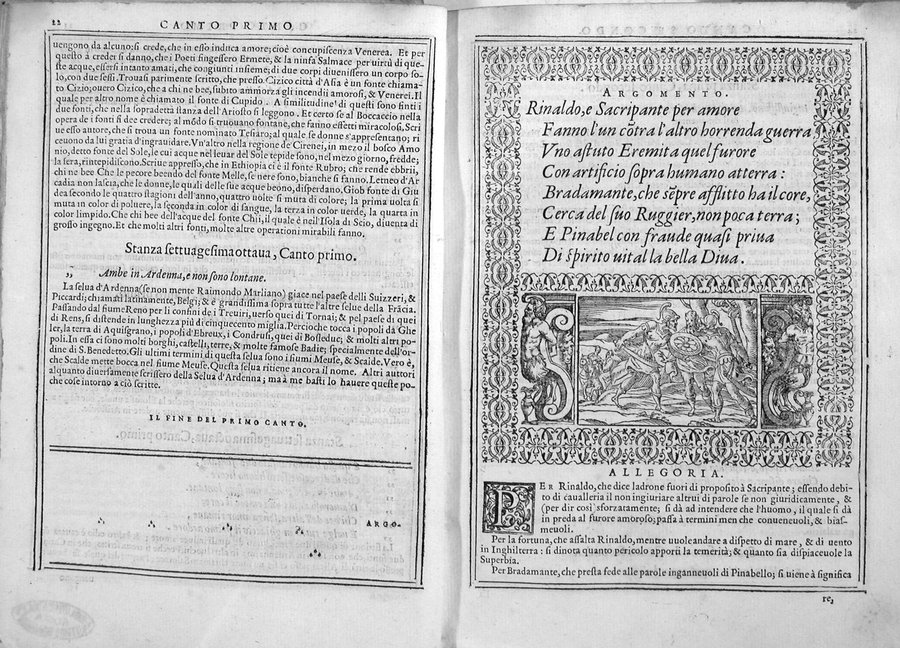 22 CANTO PRIMO
uengono da alcuno: si crede, che in esso induca amore; cioè concupiscenza Venerea. Et per
questo à creder si danno, che i Poeti fingessero Ermete, & la ninfa Salmace per uirtù di que-
ste acque, essersi intanto amati, che congiunti insieme; di due corpi diuenissero un corpo so-
lo, con due sessi. Trouasi parimente scritto, che presso Cizico città d'Asia è un fonte chiama-
to Cizio; ouero Cizico, che a chi ne bee, subito ammorza gli incendii amorosi, & Venerei. Il
quale per altro nome è chiamato il fonte di Cupido. A similitudine di questi sono finti i
due fonti, che nella sopradetta stanza dell'Ariosto si leggono. Et certo se al Boccaccio nella
opera de i fonti si dee credere; al mõdo si truouano fontane, che fanno effetti miracolosi. Scri
ue esso autore, che si troua un fonte nominato Tesaro; al quale se donne s'appresentano; ri
ceuono da lui gratia d'ingrauidare. Vn'altro nella regione de Cirenei, in mezo il bosco Almo
nio, detto fonte del Sole, le cui acque nel leuar del Sole tepide sono, nel mezo giorno, fredde;
la sera, rintepidiscono. Scriue appresso, che in Ethiopia ci è il fonte Rubro; che rende ebbri,
chi ne bee Che le pecore beendo del fonte Melle, se nere sono, bianche si fanno. Leneo d'Ar
cadia non lascia, che le donne, le quali delle sue acque beono, disperdano. Giob fonte di Giu
dea secondo le quatro stagioni dell'anno, quattro uolte si muta di colore; la prima uolta si
muta in color di poluere, la seconda in color di sangue, la terza in color uerde, la quarta in
color limpido. Che chi bee dell'acque del fonte Chii, il quale è nell'Isola di Scio, diuenta di
grosso ingegno. Et che molti altri fonti, molte altre operationi mirabili fanno.
Stanza settuagesimaottaua, Canto primo.
,, Ambe in Ardenna, e non sono lontane.
La selua d'Ardenna (se non mente Raimondo Marliano) giace nel paese delli Suizzeri, &
Piccardi; chiamati latinamente, Belgi; & è grandissima sopra tutte l'altre selue della Frãcia.
Passando dal fiume Reno per li confini de i Treuiri, uerso quei di Tornai; & pel paese di quei
di Rens, si distende in lunghezza più di cinquecento miglia. Percioche tocca i popoli dà Ghe
ler, la terra di Aquisgrano, i popoli d'Ebreux, i Condrusi, quei di Bosleduc; & molti altri po-
poli. In essa ci sono molti borghi, castelli, terre, & molte famose Badie; specialmente dell'or-
dine di S. Benedetto. Gli ultimi termini di questa selua sono i fiumi Meuse, & Scalde. Vero è,
che Scalde mette bocca nel fiume Meuse. Questa selua ritiene ancora il nome. Altri auttori
alquanto diuersamente scrissero della Selua d'Ardenna; ma à me basti lo hauere queste po-
che cose intorno a ciò scritte.
IL FINE DEL PRIMO CANTO.
ARGO-
ARGOMENTO.
Rinaldo, e Sacripante per amore
Fanno l'un cõtra l'altro horrenda guerra
Vno astuto Eremita quel furore
Con artificio sopra humano atterra:
Bradamante, che sẽpre afflitto ha il core,
Cerca del suo Ruggier, non poca terra;
E Pinabel con fraude quasi priua
Di spirito uital la bella Diua.
ALLEGORIA.
PER Rinaldo, che dice ladrone fuori di proposito à Sacripante; essendo debi-
to di caualleria il non ingiuriare altrui di parole se non giuridicamente, &
(per dir così sforzatamente; si dà ad intendere che l'huomo, il quale si dà
in preda al furore amoroso; passa à termini men che conueneuoli, & bias-
meuoli.
Per la fortuna, che assalta Rinaldo, mentre uuole andare a dispetto di mare, & di uento
in Inghilterra: si dinota quanto pericolo apporti la temerità; & quanto sia dispiaceuole la
Superbia.
Per Bradamante, che presta fede alle parole inganneuoli di Pinabello; si uiene à significa
re,